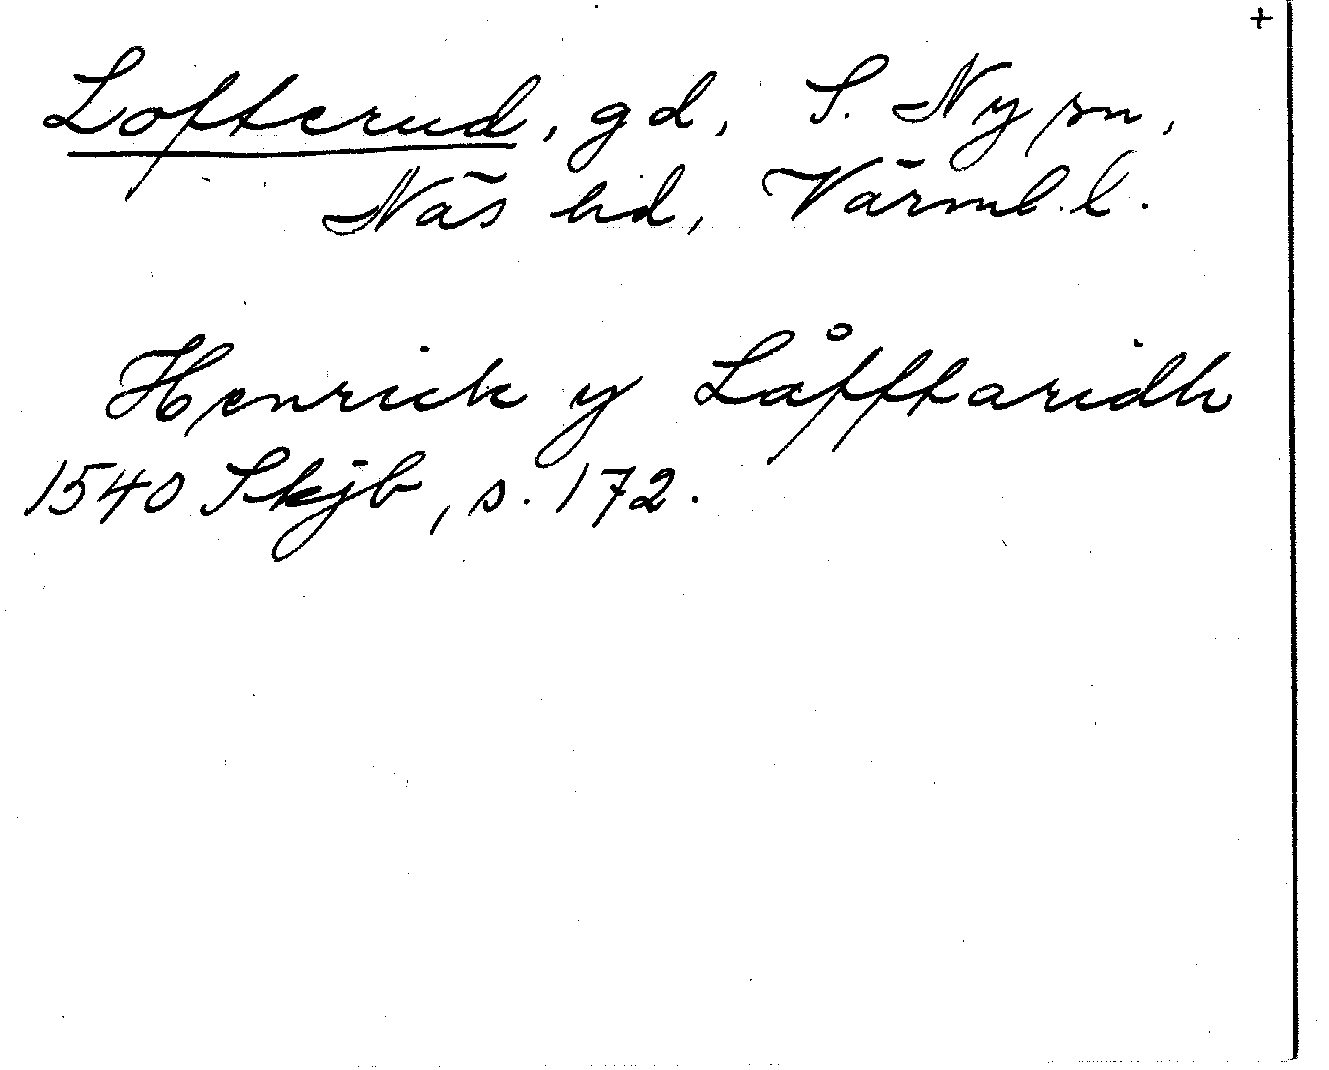 +
Lofterud, gd, S. Ny sn,
Näs hd, Värml. l.
Henrick y Låfftaridh
1540 Skjb, s. 172.